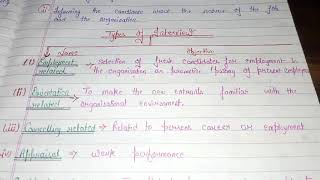 (ii) Informing the candidate about the nature of the job
and the organisation.
Types of Interview
Name Objective
(i) Employment related → Selection of fresh candidates for employment in
the organisation or promotion of present employees
(ii) Orientation related → To make the new entrants familiar with the
organisational environment.
(iii) Councelling related → Related to persons career or employment
(iv) Appraisal → work performance